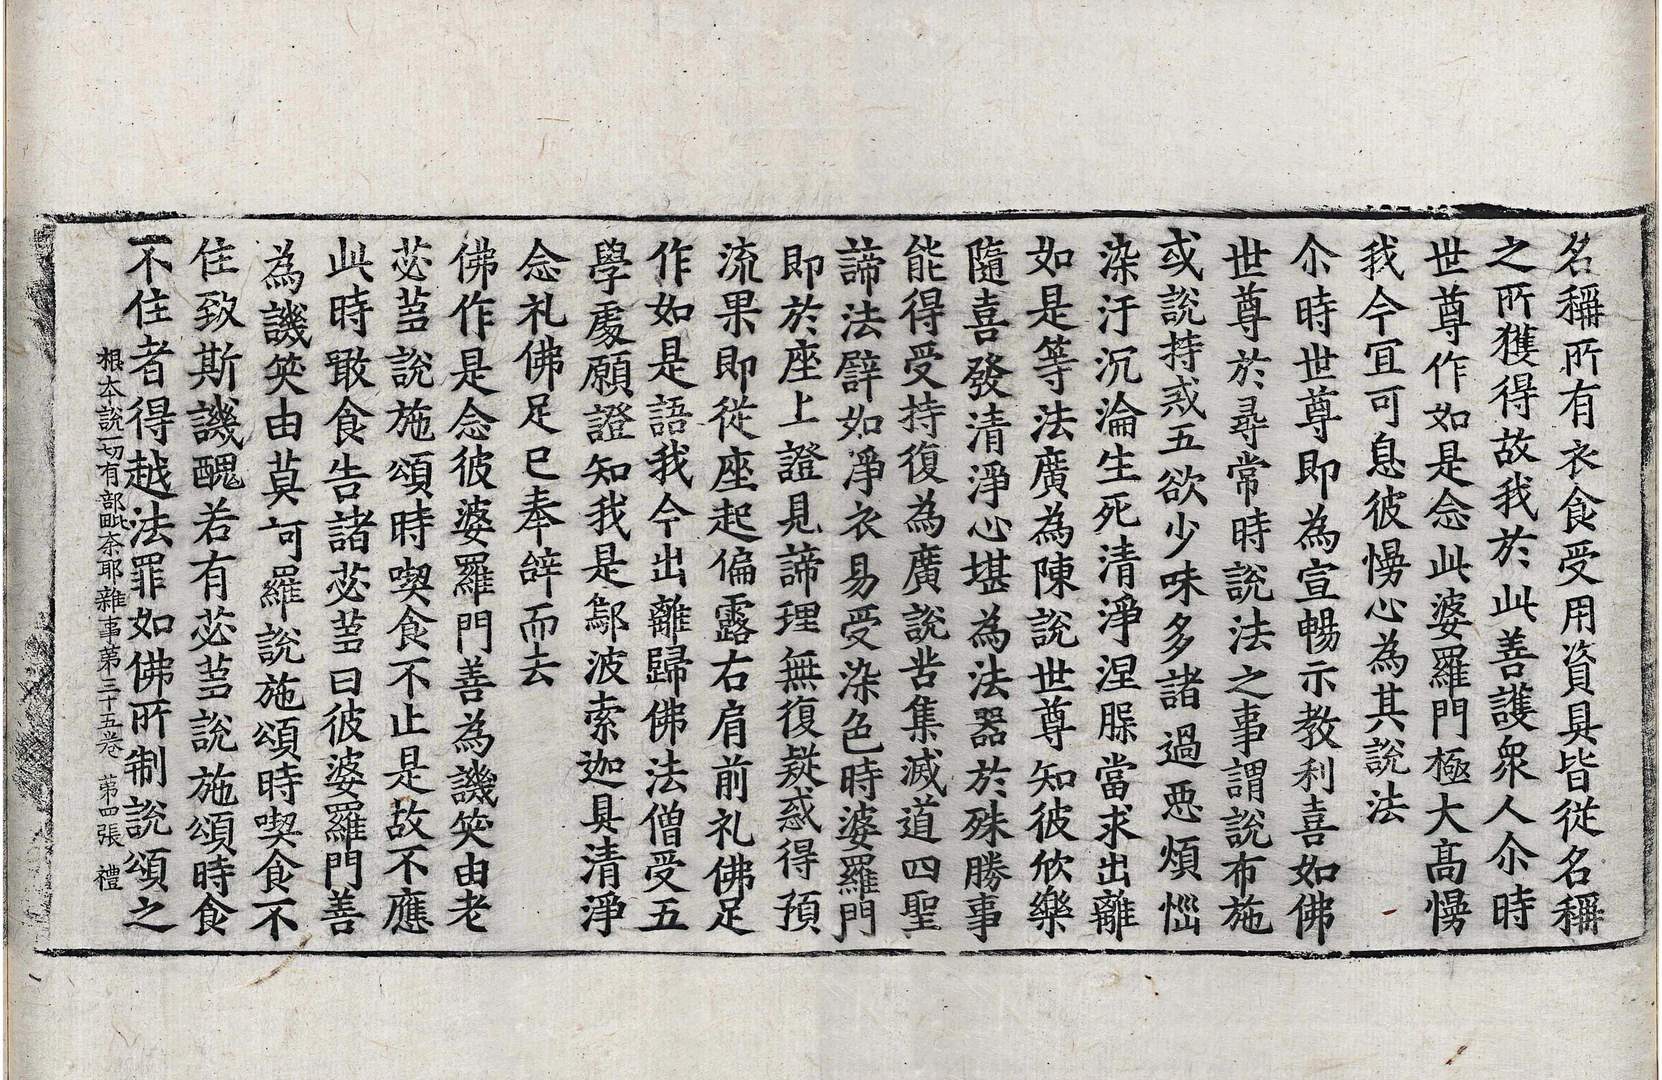 名稱所有衣食受用資具皆從名稱
之所獲得故我於此善護衆人尒時
世尊作如是念此婆羅門極大高慢
我今冝可息彼慢心為其說法
尒時世尊即為宣暢示教利喜如佛
世尊於尋常時說法之事謂說布施
或說持戒五欲少味多諸過悪煩惱
染汙沉淪生死清淨涅槃當求出離
如是等法廣為陳說世尊知彼欣樂
隨喜發清淨心堪為法器於殊勝事
能得受持復為廣說苦集滅道四聖
諦法譬如淨衣易受染色時婆羅門
即於座上證見諦理無復疑惑得預
流果即從座起偏露右肩前礼佛足
作如是語我今出離歸佛法僧受五
學處願證知我是鄔波索迦具清淨
念礼佛足已奉辝而去
佛作是念彼婆羅門善為譏笑由老
苾芻說施頌時喫食不止是故不應
此時噉食告諸苾芻曰彼婆羅門善
為譏笑由莫訶羅說施頌時喫食不
住致斯譏醜若有苾芻說施頌時食
不住者得越法罪如佛所制說頌之
根本說一切有部毗奈耶雜事第三十五卷 第四張 禮